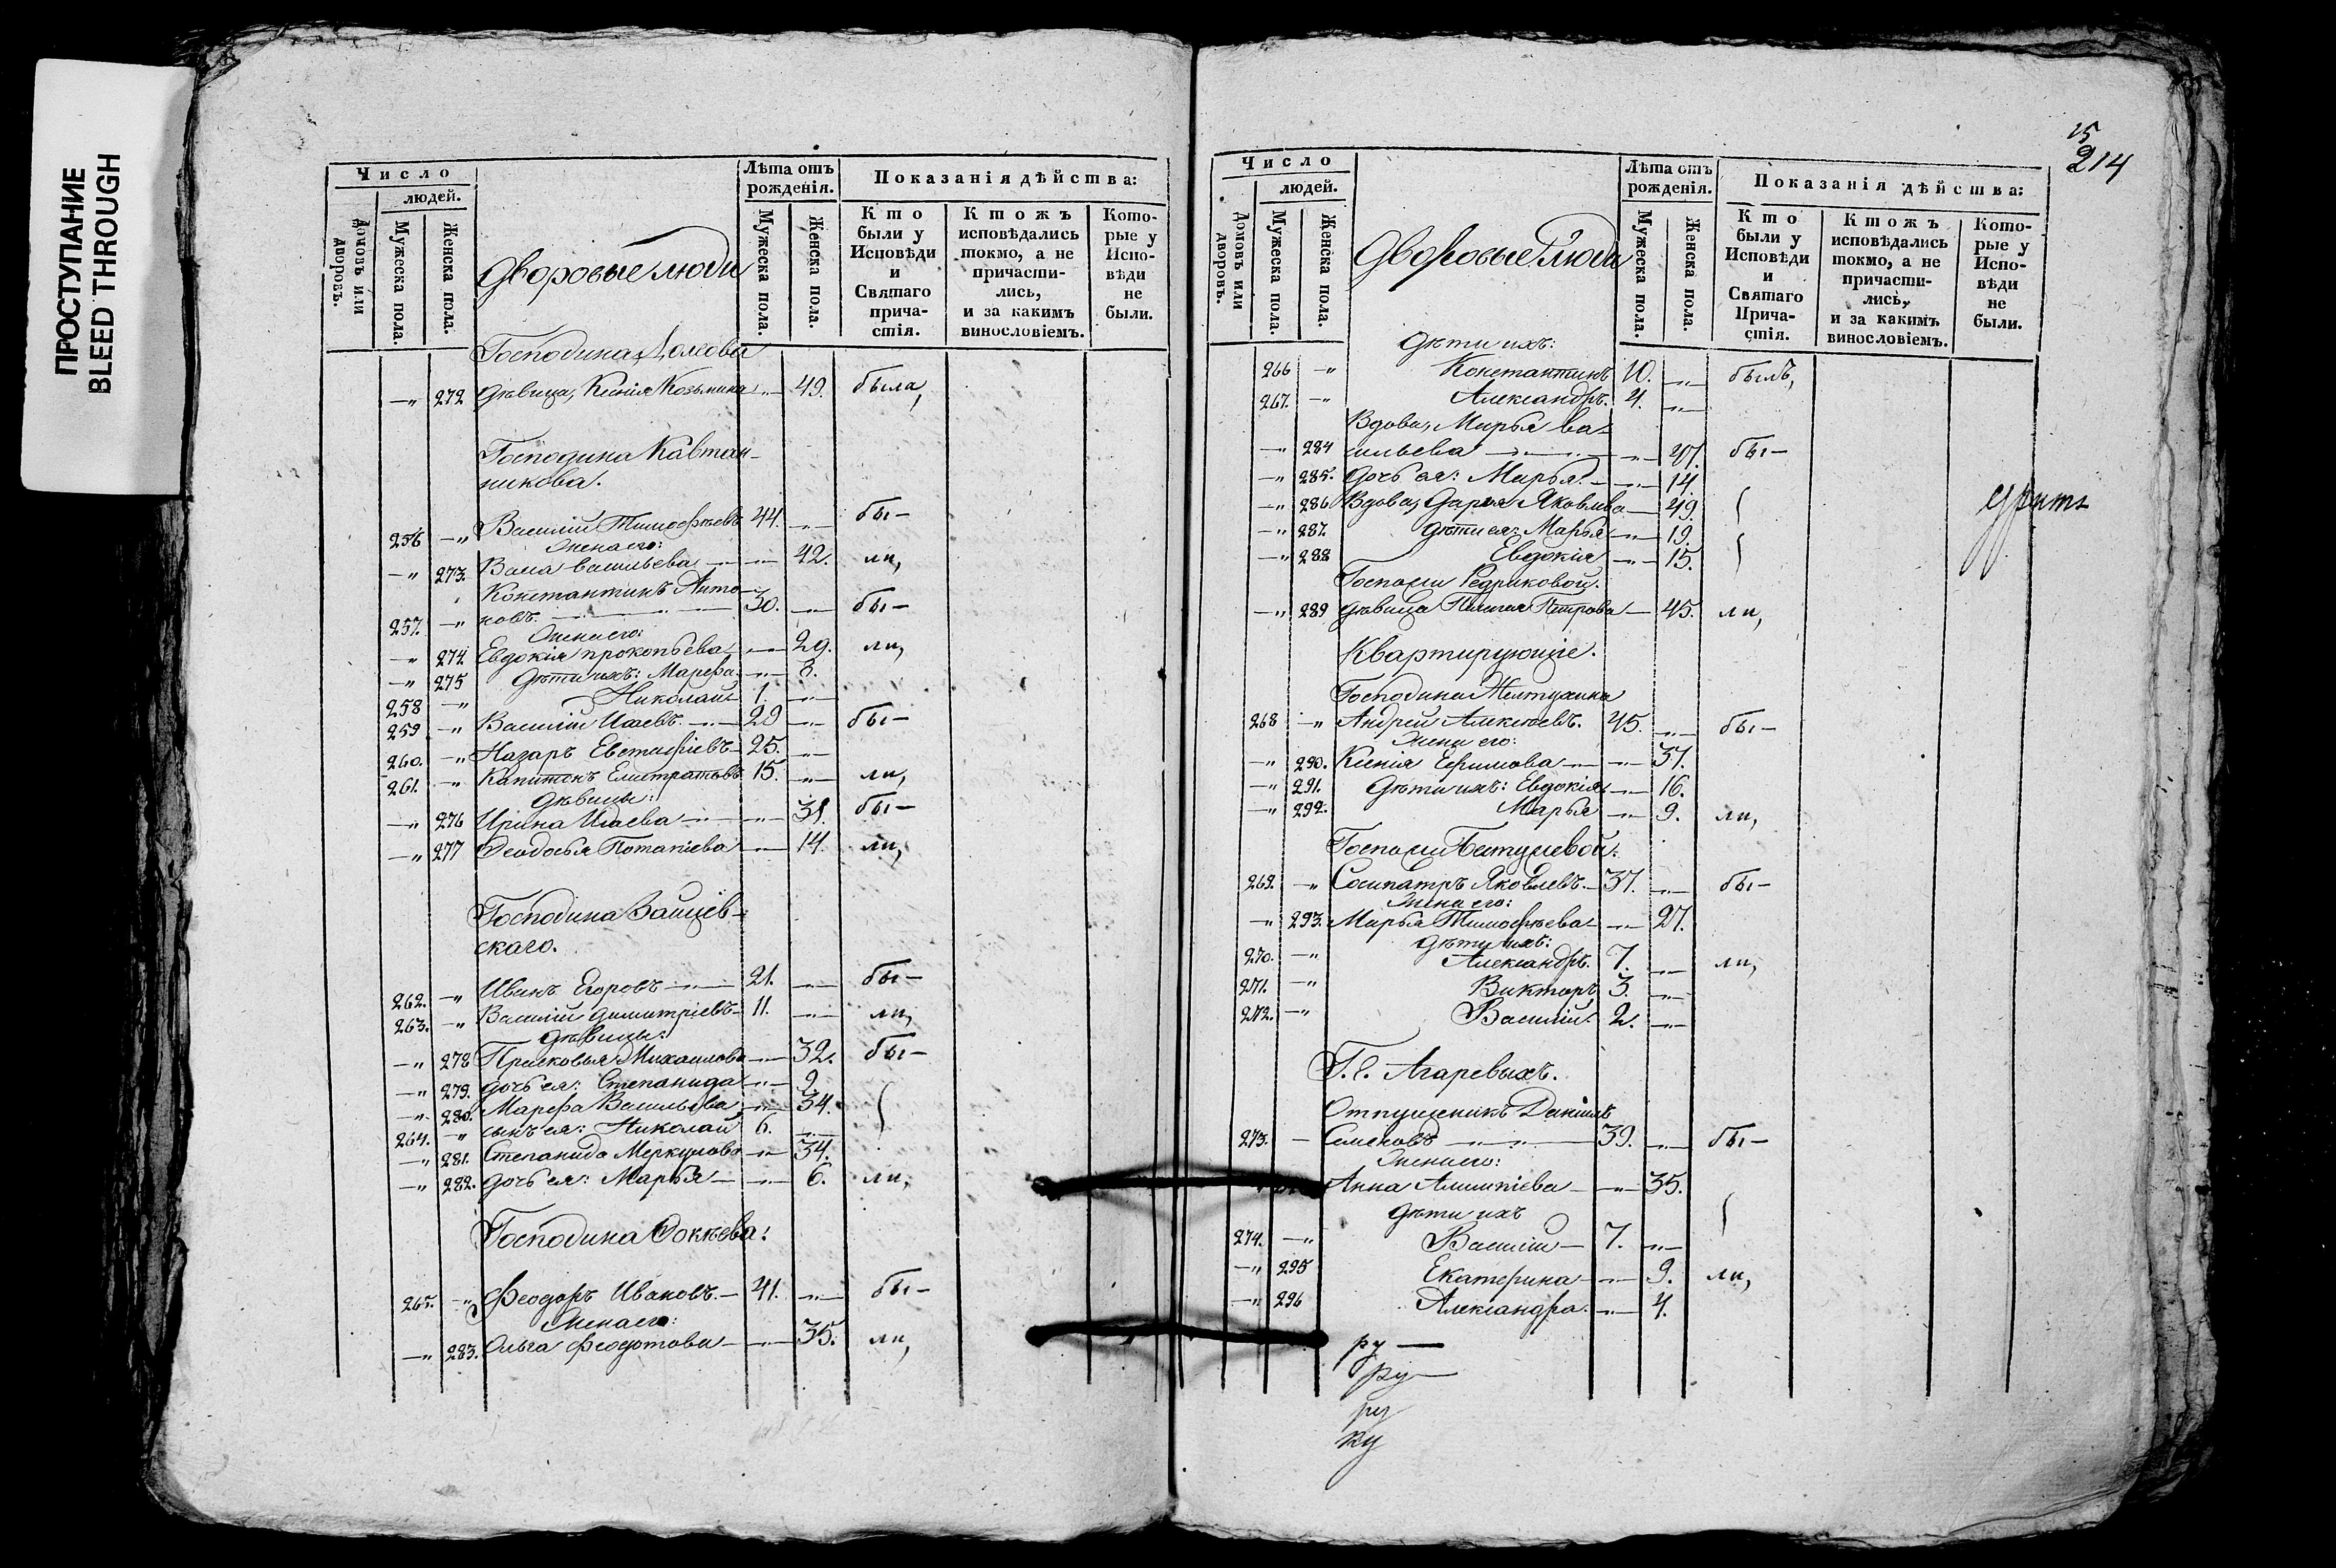 ПРОСТУПАНИЕ
BLEED THROUGH
Число
людей.
Домовъ или дворовъ.
Мужеска пола.
Женска пола.
Дворовые люди
Лѣта отъ рожденія.
Мужеска пола.
Женска пола.
Показанія дѣйства:
Кто были у Исповѣди и Святаго причастія.
Ктожъ исповѣдались токмо, а не причастились, и за какимъ винословіемъ.
Которые у Исповѣди не были.
Господина
—„ 272 Дѣвица, Ксенія Козьмина —„— 49. была,
Господина Кавтан-
никова.
256 —„ Василій Тимофѣевъ 44. —„— бы—
Жена его:
—„ 273. Васса Васильева —„— 42. ли,
Константинъ Анто-
257. —„ новъ. 30. —„— бы—
Жена его:
—„ 274. Евдокія Прокопьева —„— 29. ли,
—„ 275 Дѣти ихъ: Марѳа —„— 8.
258 —„ Николай 1. —„—
259 —„ Василій Исаевъ. 29 —„— бы—
260. —„ Назаръ Евстафіевъ 25. —„—
261. —„ Капитонъ Елистратовъ 15. —„— ли,
Дѣвицы:
—„ 276 Ирина Исаева —„— 31. бы—
—„ 277 Ѳеодосья Потапіева —„— 14. ли,
Господина Зайцев-
скаго.
262. —„ Иванъ Егоровъ 21. —„— бы—
263. —„ Василій Димитріевъ 11. —„— ли,
Дѣвицы:
—„ 278 Прасковья Михаилова —„— 32. бы—
—„ 279. дочь ея: Степанида —„— 9.
—„ 280. Марѳа Васильева —„— 34.
264. —„ сынъ ея: Николай 6. —„—
—„ 281. Степанида Меркулова —„— 34.
—„ 282. дочь ея: Марья —„— 6. ли,
Господина
265. —„ Феодоръ Ивановъ. 41. —„— бы—
Жена его:
—„ 283. Ольга Федотова —„— 35. ли,
15
214
Число
людей.
Домовъ или дворовъ.
Мужеска пола.
Женска пола.
Дворовые Люди
Лѣта отъ рожденія.
Мужеска пола.
Женска пола.
Показанія дѣйства:
Кто были у Исповѣди и Святаго Причастія.
Ктожъ исповѣдались токмо, а не причастились, и за какимъ винословіемъ.
Которые у Исповѣди не были.
Дѣти ихъ:
266 —„ Константинъ 10. —„— былъ,
267. —„ Александръ. 4. —„—
Вдова, Марья Ва-
—„ 284 сильева —„— 47. бы—
—„ 285. Дочь ея: Марья —„— 14
—„ 286 Вдова, Дарья Яковлева — 49.
—„ 287. Дѣти ея: Марья —„— 19.
—„ 288 Евдокія —„— 15.
Госпожи Редриковой.
—„ 289 дѣвица Пелагея Петрова — 45. ли,
Квартирующіе.
Господина Желтухина
268 —„ Андрей Алексѣевъ. 45. —„— бы—
Жена его:
—„ 290. Ксенія Ефимова —„— 37.
—„ 291. Дѣти ихъ: Евдокія —„— 16.
—„ 292. Марья —„— 9. ли,
Госпожи Бестужевой:
269. —„ Сосипатръ Яковлевъ. 37. —„— бы—
Жена его:
—„ 293. Марья Тимофѣева —„— 27.
Дѣти ихъ:
270. —„ Александръ. 7. —„— ли,
271. —„ Викторъ 3. —„—
272. —„ Василій. 2. —„—
Г. г. Агаревыхъ.
Отпущеникъ Даніилъ
273. — Семеновъ 39. —„— бы—
Жена его:
Анна Алимпіева —„— 35.
Дѣти ихъ
274. —„ Василій — 7. —„—
—„ 295 Екатерина —„— 9. ли,
—„ 296 Александра. —„— 4.
ру —
ру—
ру
ку